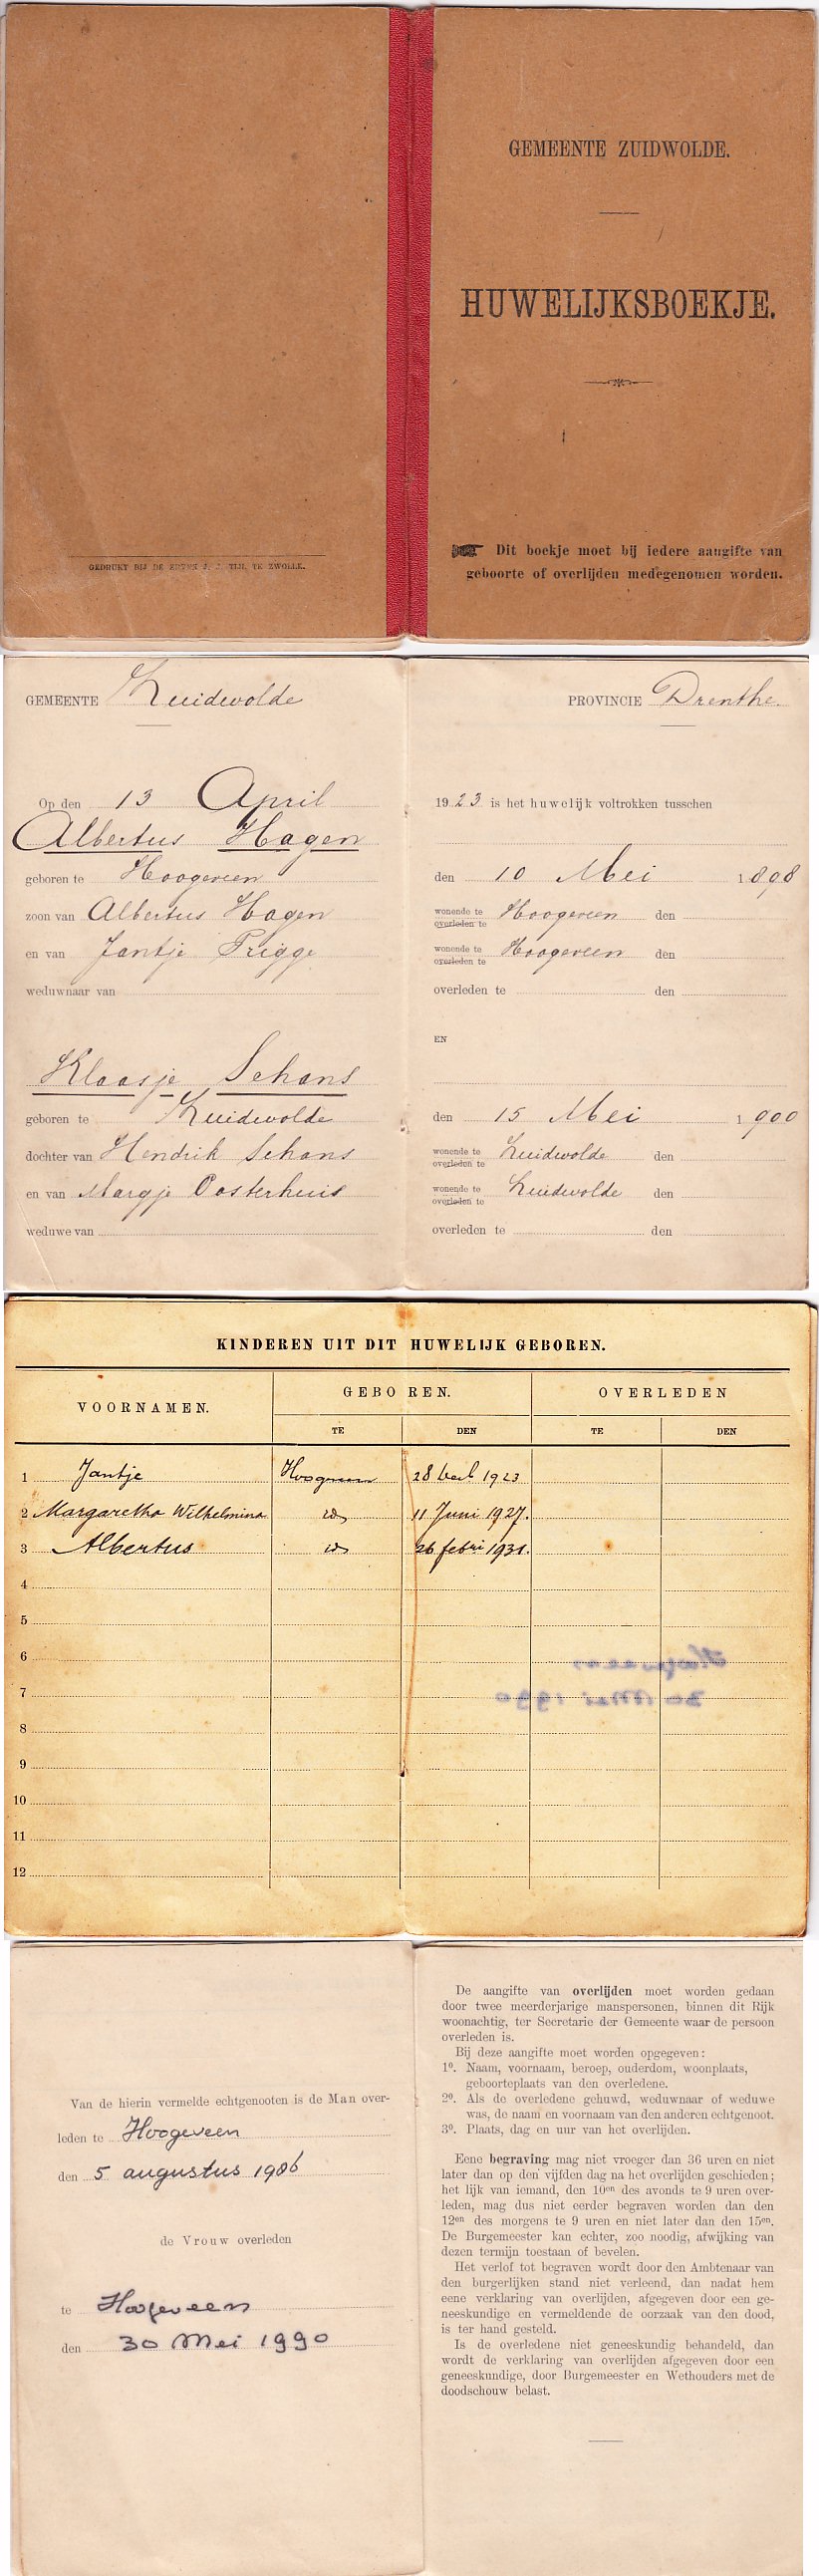 GEMEENTE ZUIDWOLDE.
HUWELIJKSBOEKJE.
Dit boekje moet bij iedere aangifte van
geboorte of overlijden medegenomen worden.
GEDRUKT BIJ DE ERVEN J. J. TIJL TE ZWOLLE.
GEMEENTE Zuidwolde
PROVINCIE Drenthe.
Op den 13 April
1923 is het huwelijk voltrokken tusschen
Albertus Hagen
geboren te Hoogeveen
den 10 Mei 1898
zoon van Albertus Hagen
wonende te overleden te Hoogeveen den
en van Jantje Prigge
wonende te overleden te Hoogeveen den
weduwnaar van
overleden te den
EN
Klaasje Schans
geboren te Zuidwolde
den 15 Mei 1900
dochter van Hendrik Schans
wonende te overleden te Zuidwolde den
en van Margje Oosterhuis
wonende te overleden te Zuidwolde den
weduwe van
overleden te den
KINDEREN UIT DIT HUWELIJK GEBOREN.
VOORNAMEN. GEBOREN. OVERLEDEN
TE DEN TE DEN
1 Jantje Hoogeveen 28 1923
2 Margaretha Wilhelmina id 11 Juni 1927.
3 Albertus id 26 febri 1931.
4
5
6
7
8
9
10
11
12
Van de hierin vermelde echtgenooten is de Man over-
leden te Hoogeveen
den 5 augustus 1986
de Vrouw overleden
te Hoogeveen
den 30 Mei 1990
De aangifte van overlijden moet worden gedaan
door twee meerderjarige manspersonen, binnen dit Rijk
woonachtig, ter Secretarie der Gemeente waar de persoon
overleden is.
Bij deze aangifte moet worden opgegeven:
1º. Naam, voornaam, beroep, ouderdom, woonplaats,
geboorteplaats van den overledene.
2º. Als de overledene gehuwd, weduwnaar of weduwe
was, de naam en voornaam van den anderen echtgenoot.
3º. Plaats, dag en uur van het overlijden.
Eene begraving mag niet vroeger dan 36 uren en niet
later dan op den vijfden dag na het overlijden geschieden;
het lijk van iemand, den 10en des avonds te 9 uren over-
leden, mag dus niet eerder begraven worden dan den
12en des morgens te 9 uren en niet later dan den 15en.
De Burgemeester kan echter, zoo noodig, afwijking van
dezen termijn toestaan of bevelen.
Het verlof tot begraven wordt door den Ambtenaar van
den burgerlijken stand niet verleend, dan nadat hem
eene verklaring van overlijden, afgegeven door een ge-
neeskundige en vermeldende de oorzaak van den dood,
is ter hand gesteld.
Is de overledene niet geneeskundig behandeld, dan
wordt de verklaring van overlijden afgegeven door een
geneeskundige, door Burgemeester en Wethouders met de
doodschouw belast.